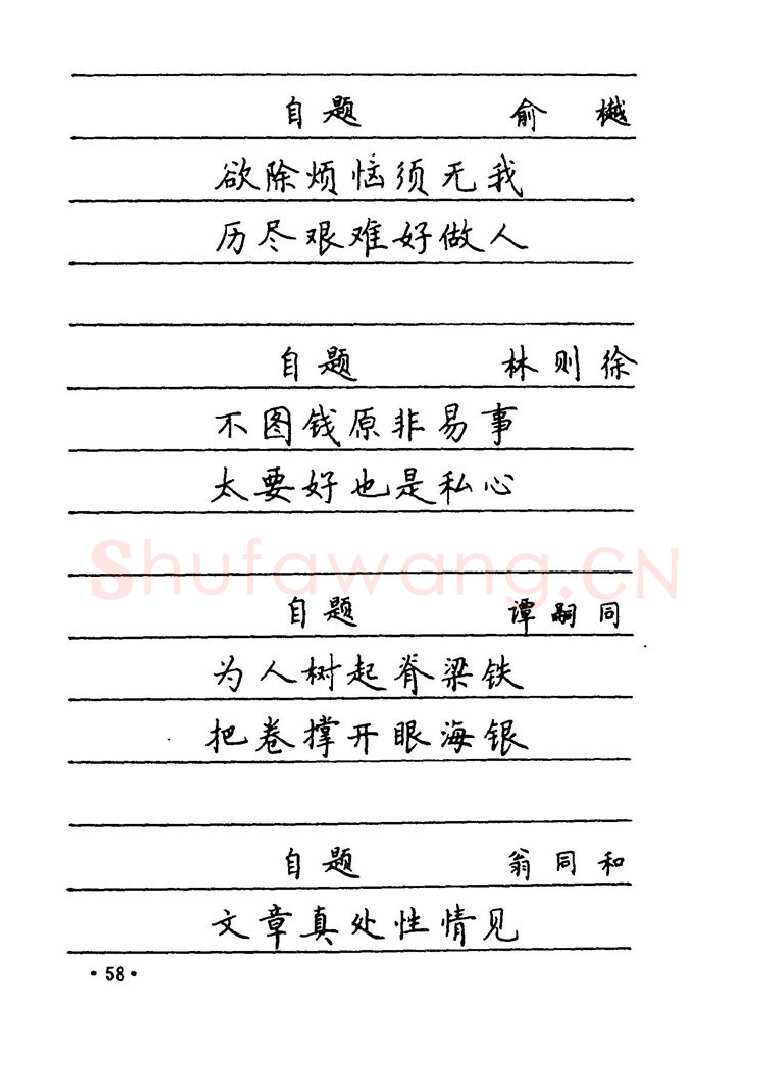 自题 俞樾
欲除烦恼须无我
历尽艰难好做人
自题 林则徐
不图钱原非易事
太要好也是私心
Shufawang.CN
自题 谭嗣同
为人树起脊梁铁
把卷撑开眼海银
自题 翁同和
文章真处性情见
·58·